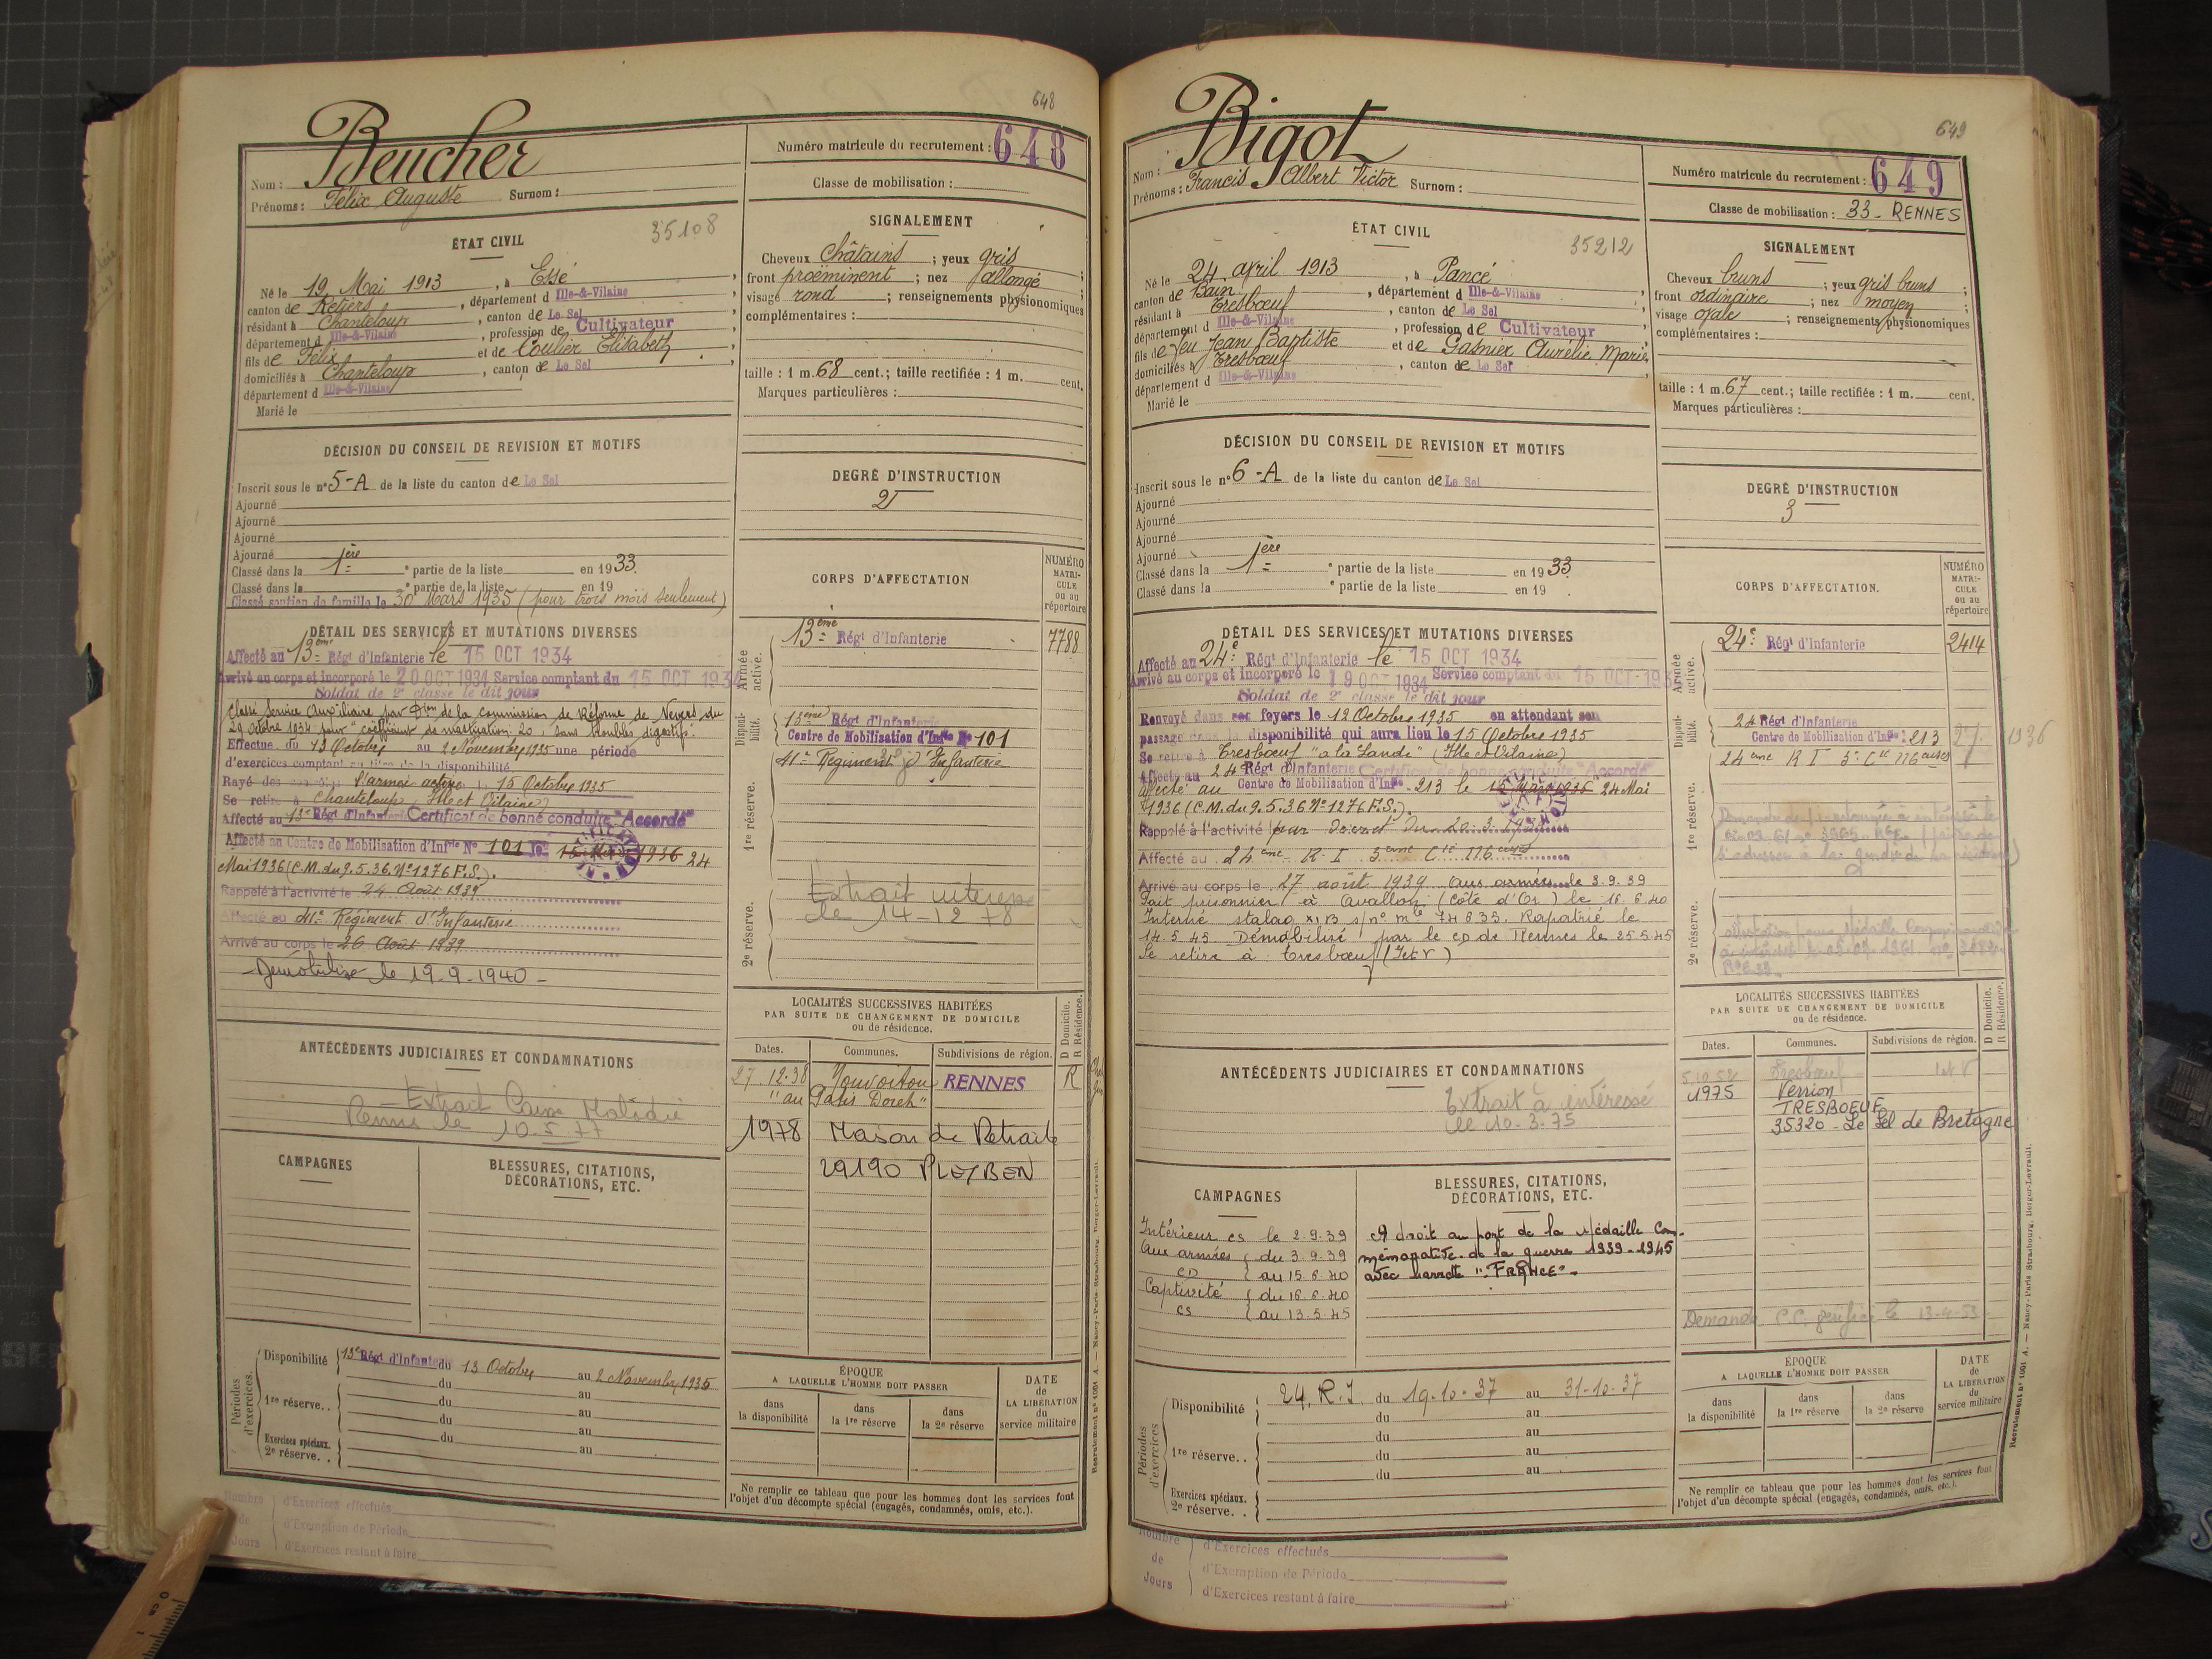 648
Beucher
Nom :
Prénoms : Félix Auguste Surnom :
Numéro matricule du recrutement : 648
Classe de mobilisation :
35108
ÉTAT CIVIL
Né le 19 Mai 1913, à Essé,
canton de Retiers, département d Ille-&-Vilaine,
résidant à Chanteloup, canton de Le Sel,
département d Ille-&-Vilaine, profession de Cultivateur,
fils de Félix et de Coulier Elisabeth,
domiciliés à Chanteloup, canton de Le Sel,
département d Ille-&-Vilaine
Marié le
SIGNALEMENT
Cheveux châtains ; yeux gris ;
front proéminent ; nez allongé ;
visage rond ; renseignements physionomiques
complémentaires :
taille : 1 m. 68 cent.; taille rectifiée : 1 m. cent.
Marques particulières :
DÉCISION DU CONSEIL DE REVISION ET MOTIFS
Inscrit sous le n° 5-A de la liste du canton de Le Sel
Ajourné
Ajourné
Ajourné
Ajourné
Classé dans la 1ère partie de la liste en 1933.
Classé dans la e partie de la liste en 19
Classé soutien de famille le 30 Mars 1935 (pour trois mois seulement)
DEGRÉ D'INSTRUCTION
2
DÉTAIL DES SERVICES ET MUTATIONS DIVERSES
Affecté au 13ème Régt d'Infanterie le 15 OCT 1934
Arrivé au corps et incorporé le 20 OCT 1934 Service comptant du 15 OCT 1934
Soldat de 2e classe le dit jour
Classé Service Auxiliaire par Don de la commission de Réforme de Nevers du
29 Octobre 1934 pour "coefficient de mastication 20, sans troubles digestifs."
Effectue du 13 Octobre au 2 Novembre 1935 une période
d'exercices comptant au titre de la disponibilité
Rayé des l'armée active le 15 Octobre 1935
Se retire à Chanteloup, (Ille et Vilaine)
Affecté au 13e Régt d'Infanterie Certificat de bonne conduite "Accordé"
Affecté au Centre de Mobilisation d'Inf.rie N° 101 le 1936 24
Mai 1936 (C.M. du 9.5.36. N° 1276 F.S.).
Rappelé à l'activité le 24 Août 1939
Affecté au 41e Régiment d'Infanterie
Arrivé au corps le 26 Août 1939
Démobilisé le 19.9.1940 -
CORPS D'AFFECTATION
NUMÉRO MATRICULE ou au répertoire
Armée active.
13ème Régt d'Infanterie 7788
Disponibilité.
13ème Régt d'Infanterie
Centre de Mobilisation d'Inf.rie N° 101
1re réserve.
41e Régiment d'Infanterie
2e réserve.
Extrait
le 14-12 78
LOCALITÉS SUCCESSIVES HABITÉES
PAR SUITE DE CHANGEMENT DE DOMICILE
ou de résidence.
D Domicile. R Résidence.
Dates. Communes. Subdivisions de région.
27.12.38 Nouvoitou RENNES R
1978 Maison de Retraite
29190 PLEYBEN
ANTÉCÉDENTS JUDICIAIRES ET CONDAMNATIONS
Extrait Caisse Maladie
Rennes le 10.5.77
CAMPAGNES
BLESSURES, CITATIONS,
DÉCORATIONS, ETC.
Périodes d'exercices.
Disponibilité 13e Régt d'Infanterie du 13 Octobre au 2 Novembre 1935
du au
1re réserve.. du au
du au
du au
Exercices spéciaux. 2e réserve. .
au
ÉPOQUE
A LAQUELLE L'HOMME DOIT PASSER
dans la disponibilité
dans la 1re réserve
dans la 2e réserve
DATE de LA LIBÉRATION du service militaire
Ne remplir ce tableau que pour les hommes dont les services font
l'objet d'un décompte spécial (engagés, condamnés, omis, etc.).
Nombre de Jours
d'Exercices effectués
d'Exemption de Période
d'Exercices restant à faire
Recrutement n° 1061 A. — Nancy-Paris-Strasbourg, Berger-Levrault.
649
Bigot
Nom :
Prénoms : Francis Albert Victor Surnom :
Numéro matricule du recrutement : 649
Classe de mobilisation : 33 - RENNES
35212
ÉTAT CIVIL
Né le 24 avril 1913, à Pancé,
canton de Bain, département d Ille-&-Vilaine,
résidant à Tresbœuf, canton de Le Sel,
département d Ille-&-Vilaine, profession de Cultivateur,
fils de feu Jean Baptiste et de Gasnier Aurélie Marie,
domiciliés à Tresbœuf, canton de Le Sel,
département d Ille-&-Vilaine
Marié le
SIGNALEMENT
Cheveux bruns ; yeux gris bruns ;
front ordinaire ; nez moyen ;
visage ovale ; renseignements physionomiques
complémentaires :
taille : 1 m. 67 cent.; taille rectifiée : 1 m. cent.
Marques particulières :
DÉCISION DU CONSEIL DE REVISION ET MOTIFS
Inscrit sous le n° 6-A de la liste du canton de Le Sel
Ajourné
Ajourné
Ajourné
Ajourné
Classé dans la 1ère partie de la liste en 1933
Classé dans la e partie de la liste en 19 .
DEGRÉ D'INSTRUCTION
3
DÉTAIL DES SERVICES ET MUTATIONS DIVERSES
Affecté au 24e Régt d'Infanterie le 15 OCT 1934
Arrivé au corps et incorporé le 19 OCT 1934 Service comptant du 15 OCT 193
Soldat de 2e classe le dit jour
Renvoyé dans ses foyers le 12 Octobre 1935 en attendant son
passage dans la disponibilité qui aura lieu le 15 Octobre 1935
Se retire à Tresbœuf "a la Lande" (Ille et Vilaine)
Affecté au 24 Régt d'Infanterie Certificat de bonne conduite "Accordé"
Affecté au Centre de Mobilisation d'Inf.rie 213 le 15 Mars 1936 24 Mai
1936 (C.M. du 9.5.36 N° 1276 F.S.).
Rappelé à l'activité par Décret du 20.3.1939
Affecté au 24ème R.I 5ème Cie
Arrivé au corps le 27 août 1939 aux armées le 3.9.39
Fait prisonnier à Avallon (Côte d'Or) le 16.6.40
Interné stalag XI B s/n° mle 74635. Rapatrié le
14.5.45 Démobilisé par le CD de Rennes le 25.5.45
Se retire à Tresbœuf (I et V)
CORPS D'AFFECTATION.
NUMÉRO MATRICULE ou au répertoire
Armée active.
24e Régt d'Infanterie 2414
Disponibilité.
24 Régt d'Infanterie
Centre de Mobilisation d'Inf.rie 213 1936
1re réserve.
24ème R I 5e Cie
2e réserve.
LOCALITÉS SUCCESSIVES HABITÉES
PAR SUITE DE CHANGEMENT DE DOMICILE
ou de résidence.
D Domicile. R Résidence.
Dates. Communes. Subdivisions de région.
5.10.52 Tresbœuf I et V
1975 Verrion
TRESBOEUF
35320 - Le Sel de Bretagne
Demande C.C. le 13-4-53
ANTÉCÉDENTS JUDICIAIRES ET CONDAMNATIONS
Extrait à intéressé
le 10-3-75
CAMPAGNES
Intérieur cs le 2.9.39
Aux armées du 3.9.39
CD au 15.6.40
Captivité du 16.6.40
cs au 13.5.45
BLESSURES, CITATIONS,
DÉCORATIONS, ETC.
A droit au port de la Médaille Com-
mémorative de la guerre 1939-1945
avec barrette "FRANCE".
Périodes d'exercices
Disponibilité 24. R.I. du 19-10-37 au 31-10-37
du au
du au
1re réserve.. du au
du au
Exercices spéciaux. 2e réserve. .
ÉPOQUE
A LAQUELLE L'HOMME DOIT PASSER
dans la disponibilité
dans la 1re réserve
dans la 2e réserve
DATE de LA LIBÉRATION du service militaire
Ne remplir ce tableau que pour les hommes dont les services font
l'objet d'un décompte spécial (engagés, condamnés, omis, etc.).
Nombre de Jours
d'Exercices effectués
d'Exemption de Période
d'Exercices restant à faire
Recrutement n° 1061 A. — Nancy-Paris-Strasbourg, Berger-Levrault.
0 cm 1